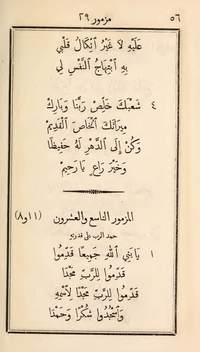 ٥٦ مزمور ٢٩
عَلَيْهِ لاَ غَيْرُ ٱتِّكَالُ قَلْبِي
بِهِ ٱبْتِهَاجُ ٱلنَّفْسِ لِي
٤ شَعْبَكَ خَلِّصْ رَبَّنَا وَبَارِكْ
مِيرَاثَكَ ٱلْخَاصَّ ٱلْقَدِيمْ
وَكُنْ إِلَى ٱلدَّهْرِ لَهُ حَفِيظًا
وَخَيْرَ رَاعٍ يَا رَحِيمْ
المزمور التاسع والعشرون (١١و٨)
حمد الرب على قدرته
١ يَا بَنِي ٱللهِ جَمِيعًا قَدِّمُوا
قَدِّمُوا لِلرَّبِّ مَجْدًا
قَدِّمُوا لِلرَّبِّ مَجْدًا لِٱسْمِهِ
وَٱسْجُدُوا شُكْرًا وَحَمْدًا